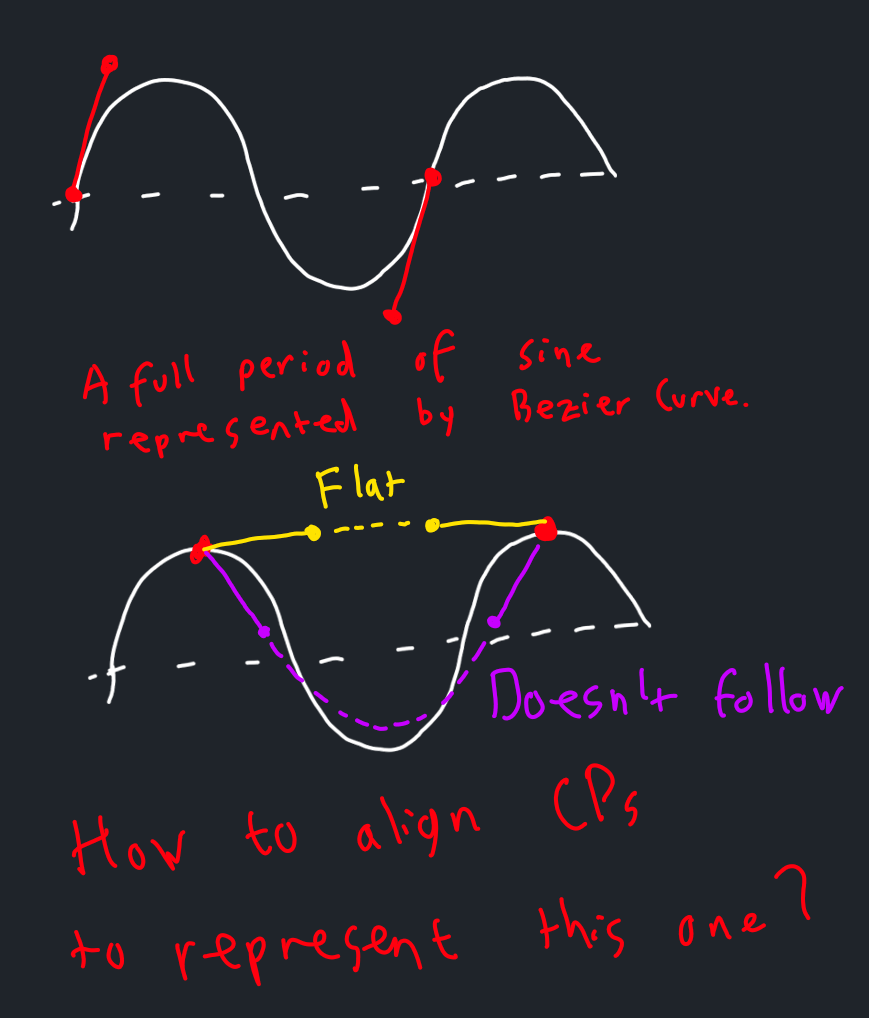 A full period of sine
represented by Bezier Curve.
Flat
Doesn't follow
How to align CPs
to represent this one?